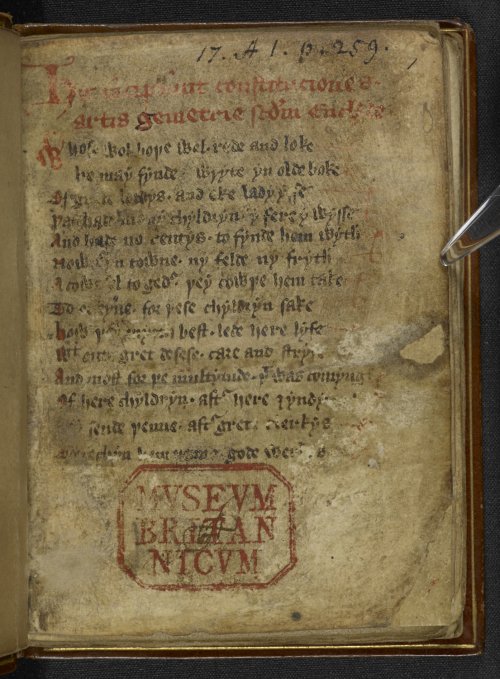 17. A 1. p. 259.
Hic incipiunt constituciones
artis gemetrie scdm Euclyde
Whose wol boþe wel rede and loke
he may fynde wryte yn olde boke
Of grete lordys. and eke ladyysse
þat hade chyldryn y fere y wysse
And hade no rentys. to fynde hem wyth
Nowþer yn towne ny felde ny fryth
A to gedr þey cowþe hem take
for þese chyldryn sake
how þey best. lede here lyfe
Wtoute gret desese. care and stryfe
And most for þe multytude. þt was comynge
Of here chyldryn. aftr here ȝyndynge
sende þenne. aftr grete clerkys
gode werkys
MVSEVM
BRITAN
NICVM